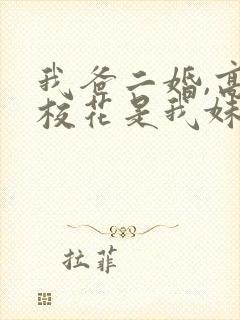 我爸二婚,高
校花是我妹
拉菲